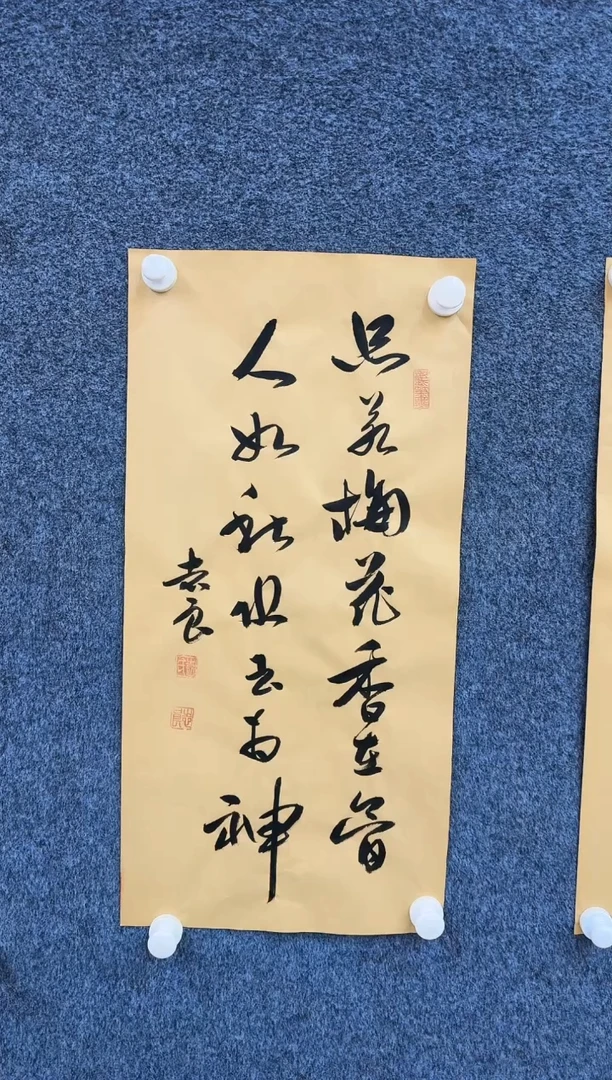 品若梅花香在骨
人如秋水玉为神
志良